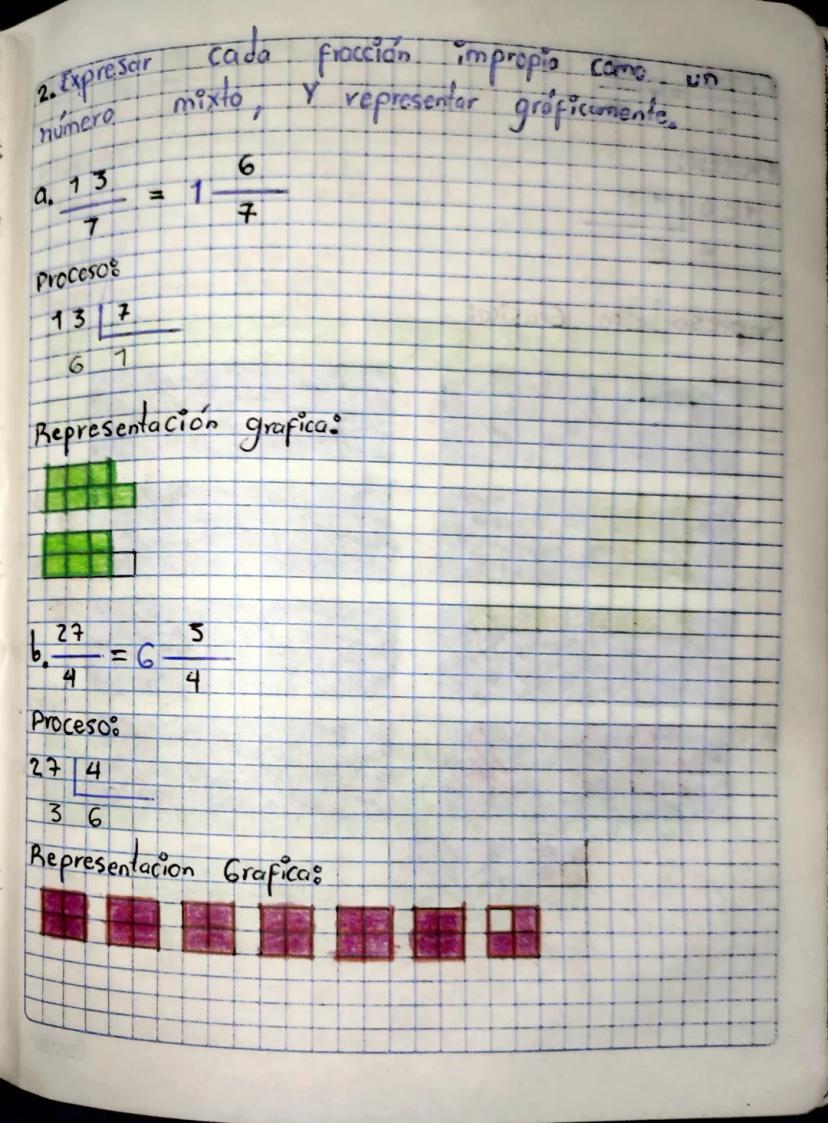 2. Expresar cada fracción impropia como un
número mixto, y representar gráficamente.
a. 13/7 = 1 6/7
Proceso:
13 7
6 1
Representación grafica:
b. 27/4 = 6 3/4
Proceso:
27 4
3 6
Representacion Grafica: